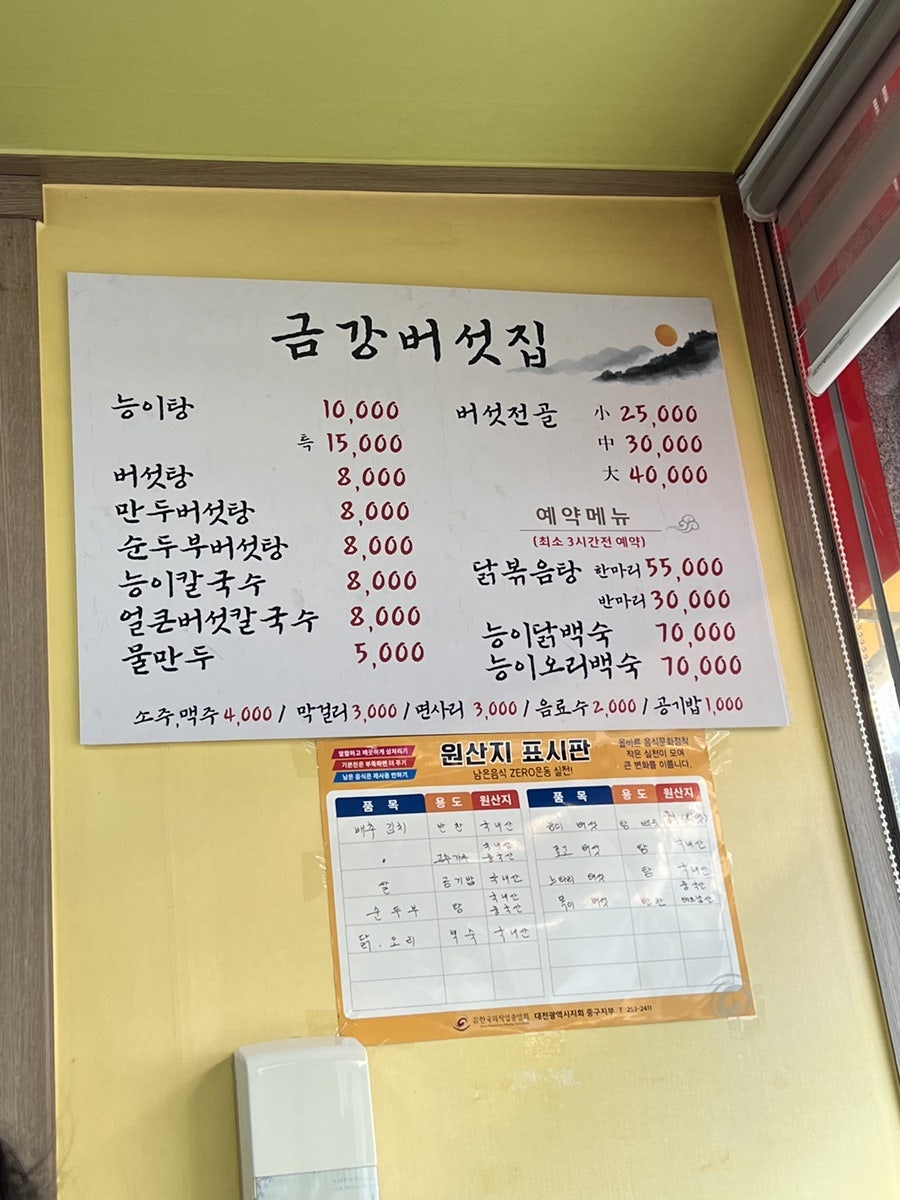 금강버섯집
능이탕 10,000
특 15,000
버섯탕 8,000
만두버섯탕 8,000
순두부버섯탕 8,000
능이칼국수 8,000
얼큰버섯칼국수 8,000
물만두 5,000
버섯전골 小 25,000
中 30,000
大 40,000
예약메뉴
(최소 3시간전 예약)
닭볶음탕 한마리 55,000
반마리 30,000
능이닭백숙 70,000
능이오리백숙 70,000
소주,맥주 4,000 / 막걸리 3,000 / 면사리 3,000 / 음료수 2,000 / 공기밥 1,000
알뜰하고 깨끗하게 상차리기
기본찬은 부족하면 더 주기
남은 음식은 재사용 안하기
원산지 표시판
남은음식 ZERO운동 실천!
올바른 음식문화정착
작은 실천이 모여
큰 변화를 이룹니다.
품 목 용 도 원산지
배추 김치 반찬 국내산
고추가루 국내산 중국산
쌀 공기밥 국내산
순두부 탕 국내산 중국산
닭. 오리 백숙 국내산
품 목 용 도 원산지
능이 버섯 탕 백숙
표고 버섯 탕 국내산
느타리 버섯 탕 국내산
목이 버섯 반찬 중국산
한국외식업중앙회 대전광역시지회 중구지부 T. 253-2411